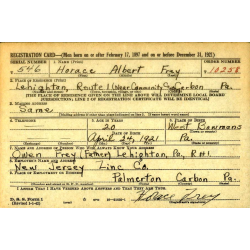 REGISTRATION CARD—(Men born on or after February 17, 1897 and on or before December 31, 1921)
SERIAL NUMBER 1. NAME (Print) ORDER NUMBER
546 Horace Albert Frey 10258
2. PLACE OF RESIDENCE (Print)
Lehighton, Route 1 Carbon Pa.
[THE PLACE OF RESIDENCE GIVEN ON THE LINE ABOVE WILL DETERMINE LOCAL BOARD
JURISDICTION; LINE 2 OF REGISTRATION CERTIFICATE WILL BE IDENTICAL]
3. MAILING ADDRESS
Same
4. TELEPHONE 5. AGE IN YEARS 6. PLACE OF BIRTH
20 West Bowmans
DATE OF BIRTH
April 24, 1921 Pa.
7. NAME AND ADDRESS OF PERSON WHO WILL ALWAYS KNOW YOUR ADDRESS
Owen Frey (Father) Lehighton, Pa., R#1
8. EMPLOYER'S NAME AND ADDRESS
New Jersey Zinc Co.
9. PLACE OF EMPLOYMENT OR BUSINESS
Palmerton Carbon Pa.
I AFFIRM THAT I HAVE VERIFIED ABOVE ANSWERS AND THAT THEY ARE TRUE.
D. S. S. FORM 1
Frey